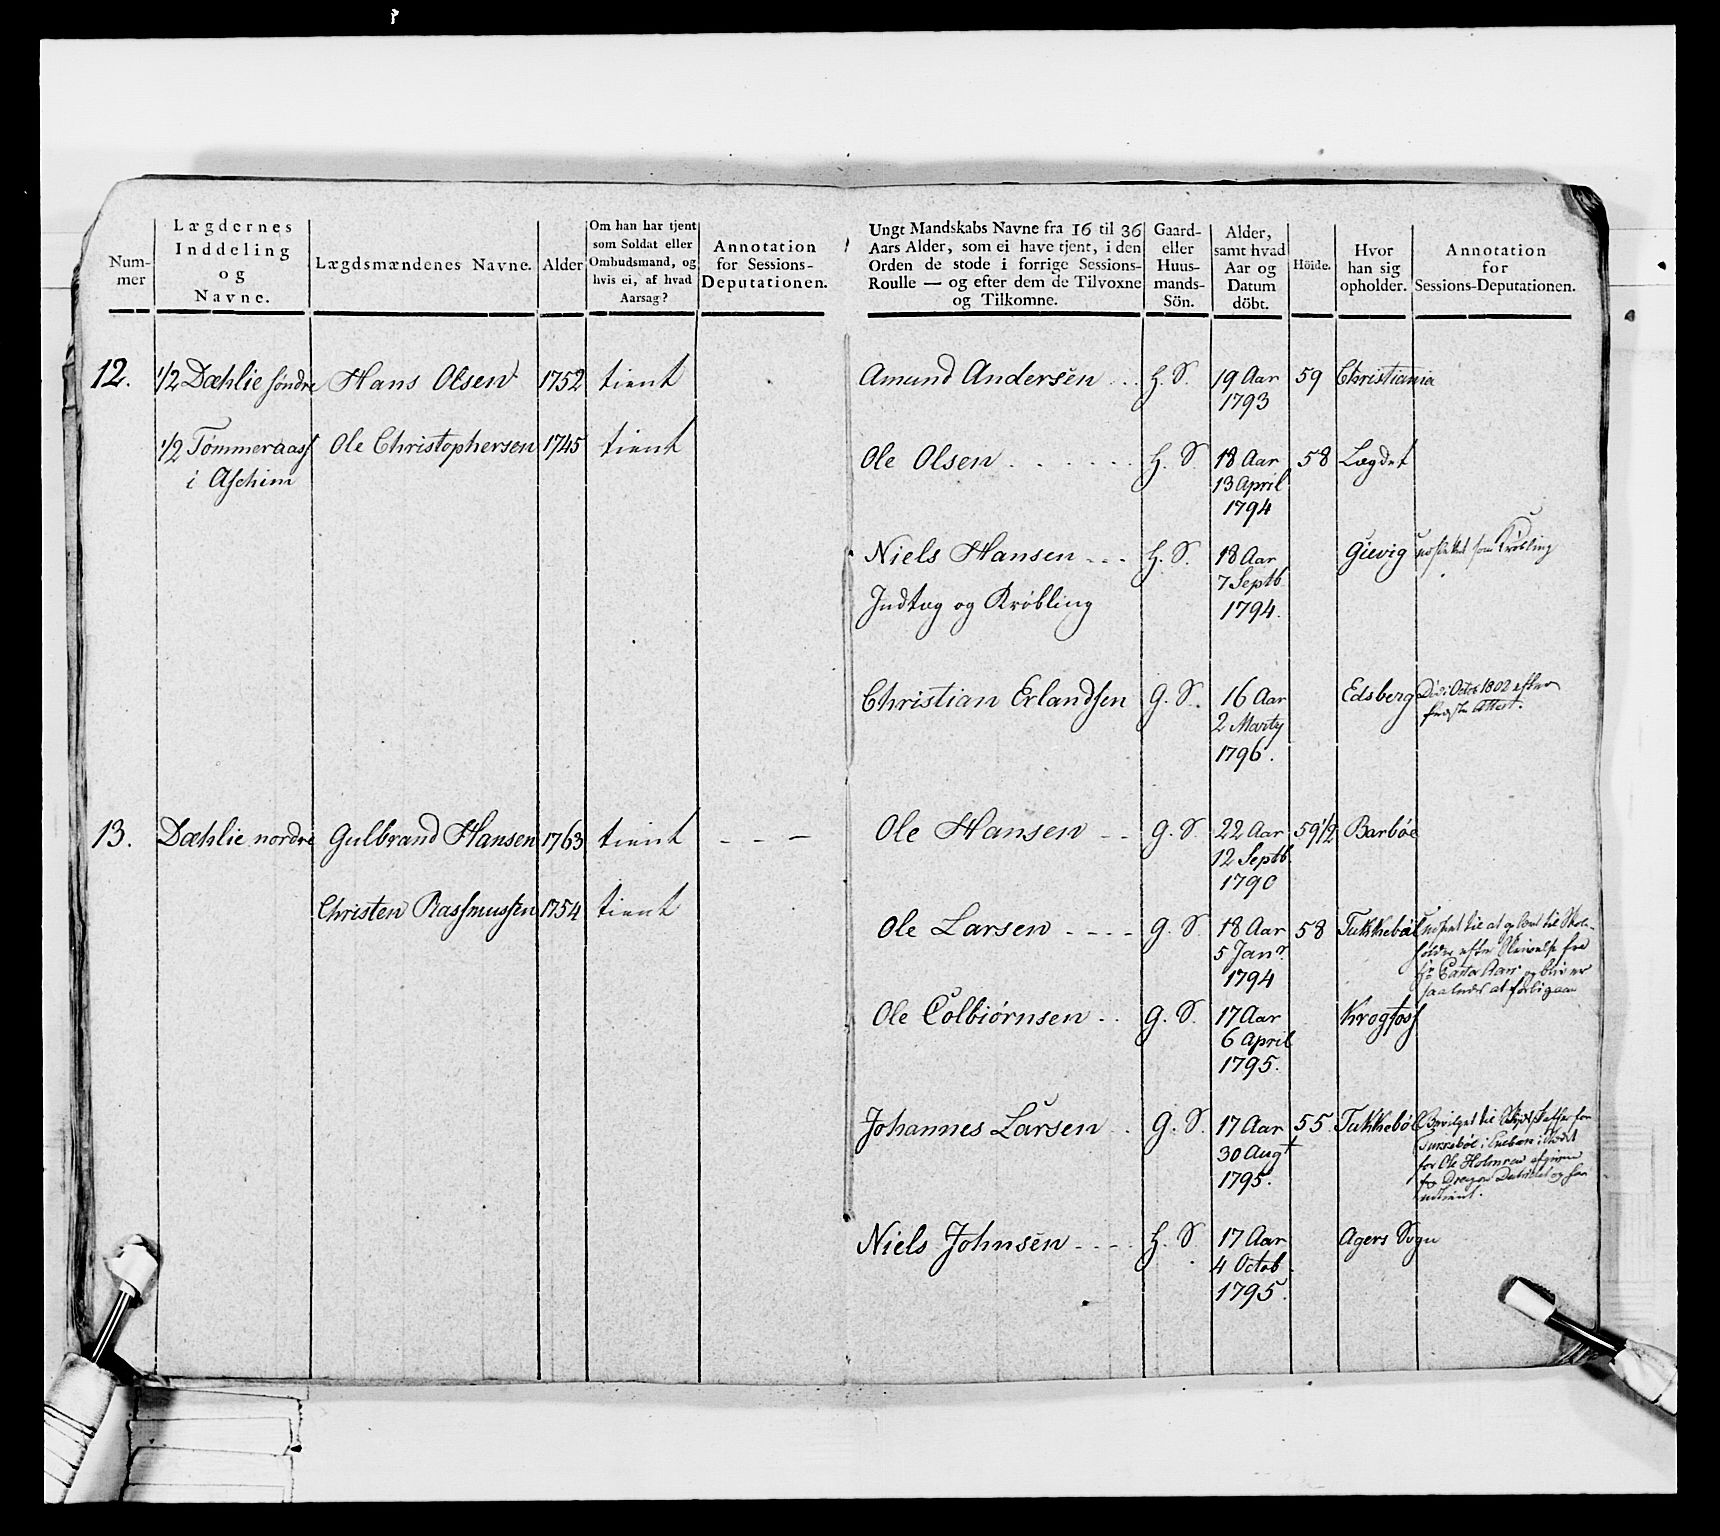 Num-
mer
Lægdernes
Inddeling
og
Navne.
Lægdsmændenes Navne.
Alder
Om han har tjent
som Soldat eller
Ombudsmand, og
hvis ei, af hvad
Aarsag?
Annotation
for Sessions-
Deputationen.
Ungt Mandskabs Navne fra 16 til 36
Aars Alder, som ei have tjent, i den
Orden de stode i forrige Sessions-
Roulle — og efter dem de Tilvoxne
og Tilkomne.
Gaard-
eller
Huus-
mands-
Sön.
Alder,
samt hvad
Aar og
Datum
döbt.
Höide.
Hvor
han sig
opholder.
Annotation
for
Sessions-Deputationen.
12. 1/2 Dæhlie søndre Hans Olsen 1752 tient
1/2 Tømmeraass Ole Christophersen 1745 tient
i Aschim
Amund Andersen . . . H. S. 19 Aar 59 Christiania
1793
Ole Olsen . . . . . . . H. S. 18 Aar 58 Lægdet
13 April
1794
Niels Hansen - - - H. S. 18 Aar Gievig som Krøbling
7 Septb
Indtag og Krøbling 1794.
Christian Erlandsen G. S. 16 Aar Edsberg Død i Octob 1802 efter
2 Marty Attest.
1796.
13. Dæhlie nordre Gulbrand Hansen 1763 tient - - —
Christen Rassmussen 1754 tient
Ole Hansen - - G. S. 22 Aar 59 1/2 Barbøe
12 Septb.
1790
Ole Larsen - - - - G. S. 18 Aar 58 Tukkebøl til at til
5 Janr. efter fra
1794 og
at
Ole Colbiørnsen . . G. S. 17 Aar Krogfoss
6 April
1795.
Johannes Larsen . . G. S. 17 Aar 55 Tukkebøl Bevilget til for
30 Augt Tukkebøl i
1795. for Ole Holmsen
Dragon og har
udtient.
Niels Johnsen - - - - H. S. 17 Aar Agers Sogn
4 Octob.
1795.